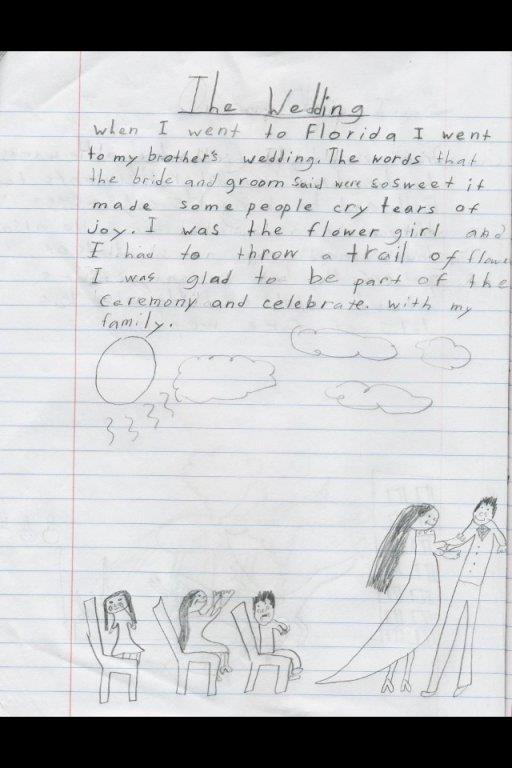 The Wedding
when I went to Florida I went
to my brother's wedding. The words that
the bride and groom said were so sweet it
made some people cry tears of
joy. I was the flower girl and
I had to throw a trail of flowe
I was glad to be part of the
Ceremony and celebrate. with my
family.